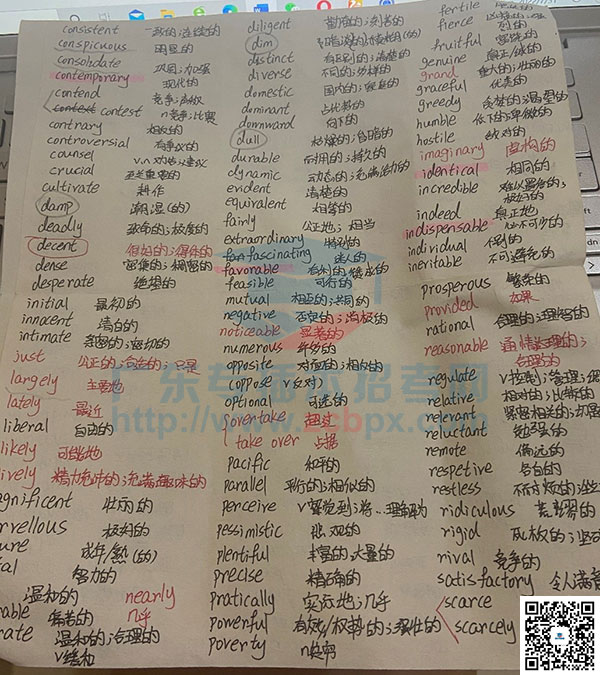 consistent 一致的;连续的
conspicuous 明显的
consolidate 巩固;加强
contemporary 现代的
contend 竞争;
contest contest n竞争;比赛
contrary 相反的
controversial 有争议的
counsel v.n 劝告;建议
crucial 至关重要的
cultivate 耕作
damp 潮湿(的)
deadly 致命的;极度的
decent 很好的;得体的
dense 密集的;稠密的
desperate 绝望的
initial 最初的
innocent 清白的
intimate 亲密的;密切的
just 公正的;合适的;只是
largely 主要地
lately 最近
liberal 自由的
likely 可能地
ively 精力充沛的;充满趣味的
gnificent 壮丽的
rvellous 极好的
ure 成年/熟(的)
al 努力的
温和的 nearly
able 几乎
rate 温和的;合理的
v缓和
diligent 勤奋的;刻苦的
dim
distinct 有区别的;清楚的
diverse 不同的;多样的
domestic 国内的;家庭的
dominant 占优势的
downward 向下的
dull 枯燥的;阴暗的
durable 耐用的;持久的
dynamic 动态的;充满活力的
evident 清楚的
equivalent 相等的
fairly 公正地;相当
extraordinary 特别的
fan fascinating 迷人的
favorable 有利的;赞成的
feasible 可行的
mutual 相互的;共同的
negative 否定的;消极的
noticeable 显著的
numerous 许多的
opposite 对面的;相反的
(oppose v反对)
optional 可选的
overtake 超过
take over 占据
pacific 和平的
parallel 平行的;相似的
perceive v察觉到;将...理解为
pessimistic 悲观的
plentiful 丰富的;大量的
precise 精确的
pratically 实际地;几乎
powerful 有效/权势的;强壮的
poverty n贫穷
fertile
fierce
fruitful 富饶的
genuine 真正/诚的
grand 重大的;壮丽的
graceful 优美的
greedy 贪婪的;渴望的
humble 低下的;卑微的
hostile 敌对的
imaginary 虚构的
identical 相同的
incredible 难以置信的;
极好的
indeed 真正地
indispensable 必不可少的
individual 个别的
ineritable 不可避免的
prosperous 繁荣的
provided 如果
rational 合理的;理智的
reasonable 通情达理的;
合理的
regulate v控制;管理;
relative 相对的;比较的
relerant 紧密相关的;
reluctant 勉强的
remote 偏远的
respetive 各自的
restless 不耐烦的;
ridiculous 荒谬的
rigid 死板的;
rival 竞争的
satisfactory 令人满意
scarce
scarcely
广东专插本招考网
http://www.zcbpx.com